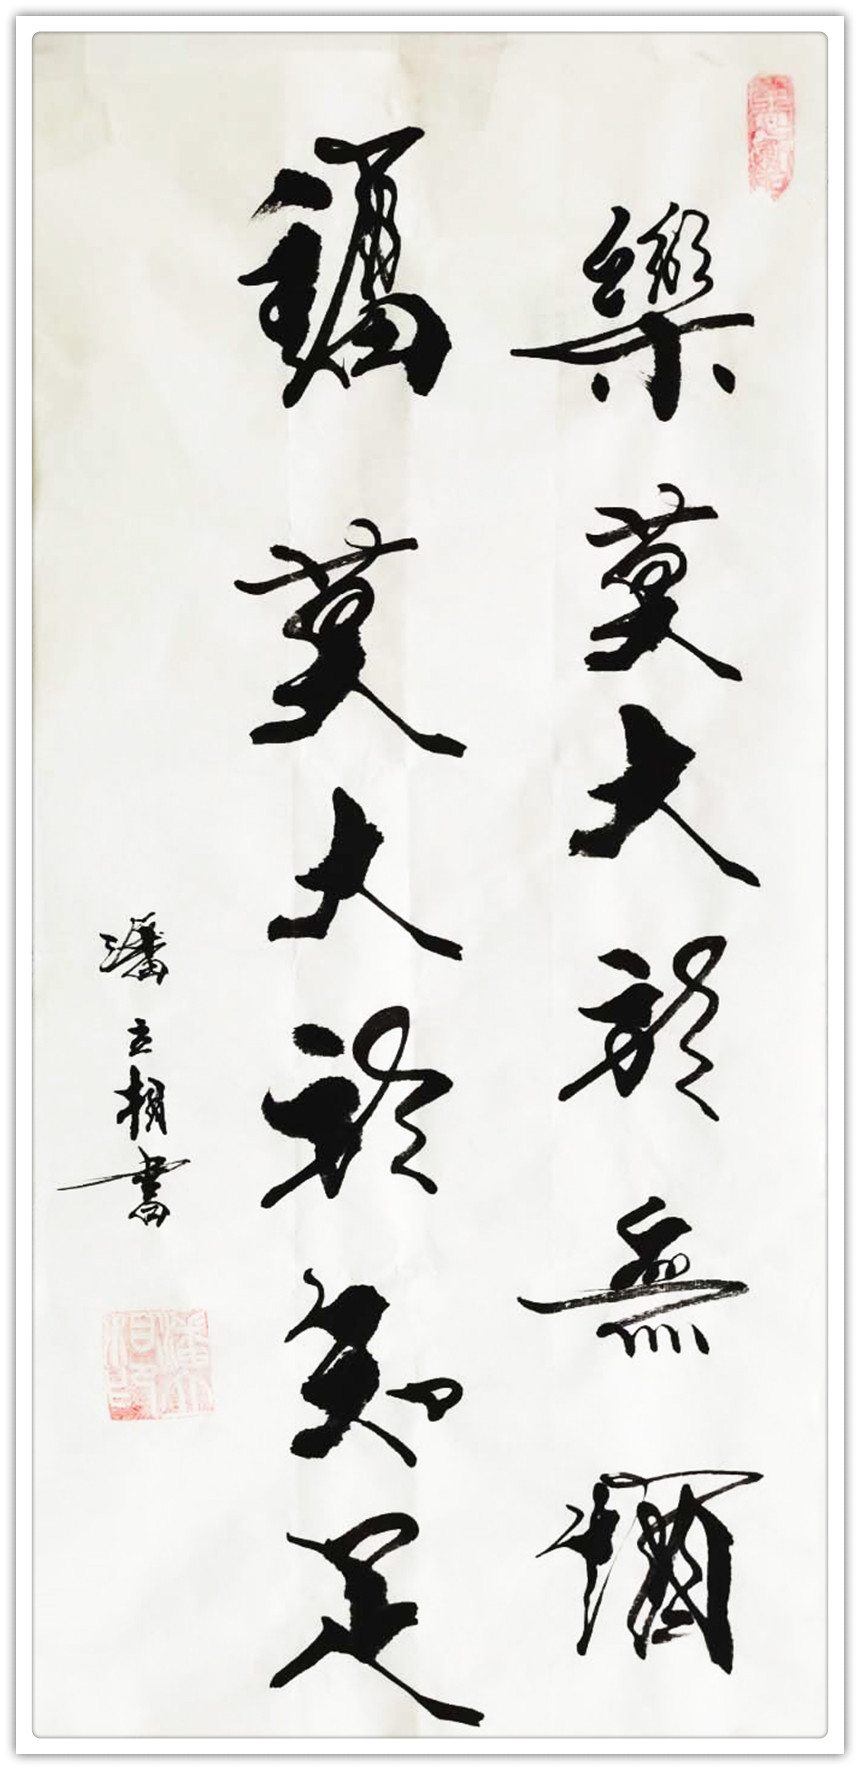 樂莫大於無
莫大於知足
潘立書